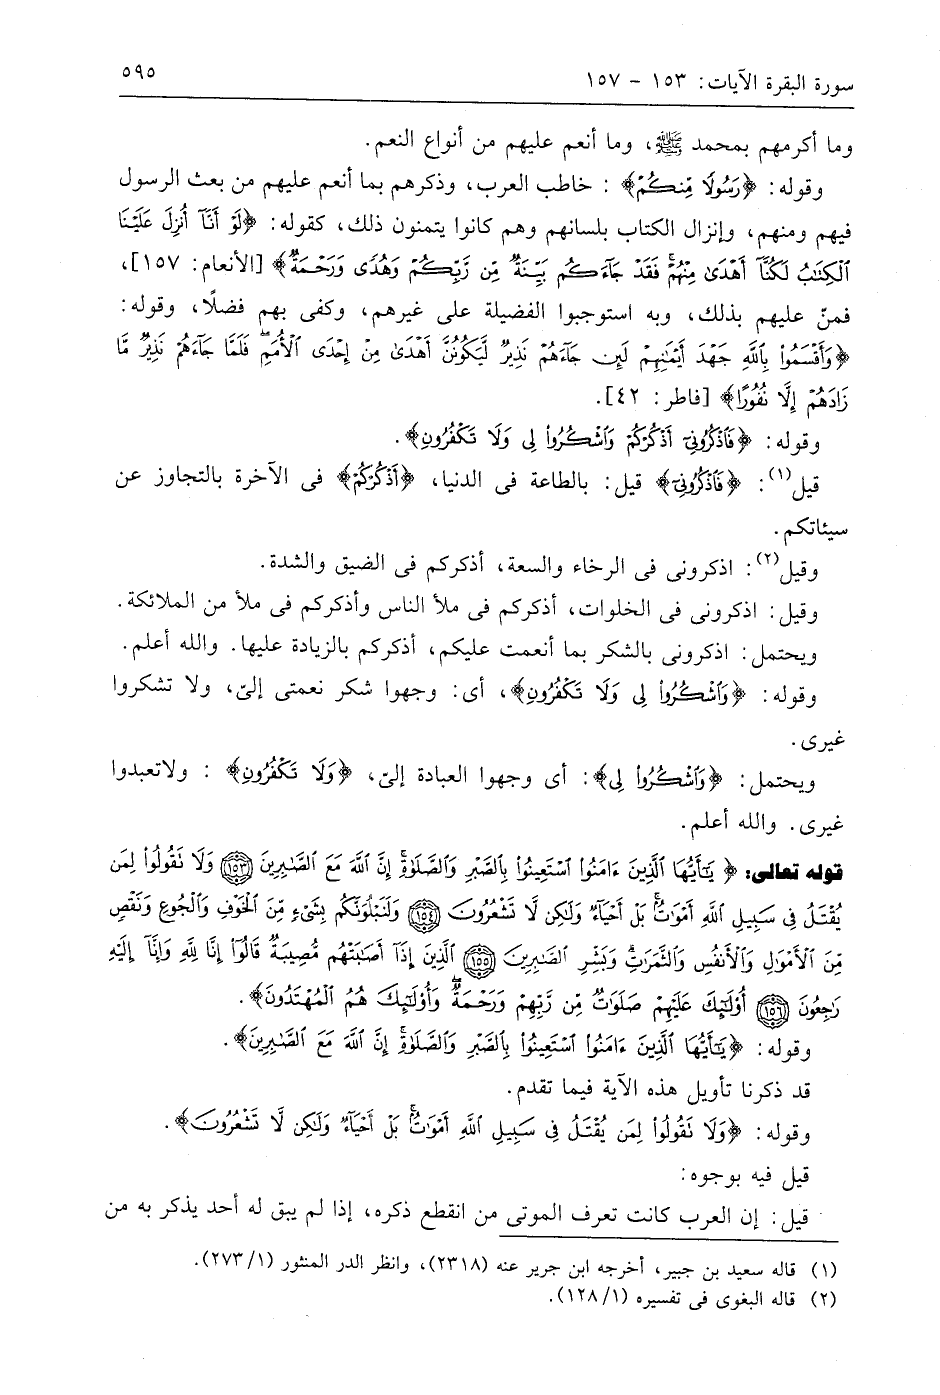 سورة البقرة الآيات: ١٥٣ - ١٥٧
٥٩٥
وما أكرمهم بمحمد ﷺ، وما أنعم عليهم من أنواع النعم.
وقوله: ﴿رَسُولًا مِّنكُمْ﴾ : خاطب العرب، وذكرهم بما أنعم عليهم من بعث الرسول
فيهم ومنهم، وإنزال الكتاب بلسانهم وهم كانوا يتمنون ذلك، كقوله: ﴿لَوْ أَنَّآ أُنزِلَ عَلَيْنَا
ٱلْكِتَٰبُ لَكُنَّآ أَهْدَىٰ مِنْهُمْ ۚ فَقَدْ جَآءَكُم بَيِّنَةٌ مِّن رَّبِّكُمْ وَهُدًى وَرَحْمَةٌ ۚ﴾ [الأنعام: ١٥٧]،
فمنّ عليهم بذلك، وبه استوجبوا الفضيلة على غيرهم، وكفى بهم فضلًا، وقوله:
﴿وَأَقْسَمُوا۟ بِٱللَّهِ جَهْدَ أَيْمَٰنِهِمْ لَئِن جَآءَهُمْ نَذِيرٌ لَّيَكُونُنَّ أَهْدَىٰ مِنْ إِحْدَى ٱلْأُمَمِ ۖ فَلَمَّا جَآءَهُمْ نَذِيرٌ مَّا
زَادَهُمْ إِلَّا نُفُورًا﴾ [فاطر: ٤٢].
وقوله: ﴿فَٱذْكُرُونِىٓ أَذْكُرْكُمْ وَٱشْكُرُوا۟ لِى وَلَا تَكْفُرُونِ﴾.
قيل(١): ﴿فَٱذْكُرُونِىٓ﴾ قيل: بالطاعة فى الدنيا، ﴿أَذْكُرْكُمْ﴾ فى الآخرة بالتجاوز عن
سيئاتكم.
وقيل(٢): اذكرونى فى الرخاء والسعة، أذكركم فى الضيق والشدة.
وقيل: اذكرونى فى الخلوات، أذكركم فى ملأ الناس وأذكركم فى ملأ من الملائكة.
ويحتمل: اذكرونى بالشكر بما أنعمت عليكم، أذكركم بالزيادة عليها. والله أعلم.
وقوله: ﴿وَٱشْكُرُوا۟ لِى وَلَا تَكْفُرُونِ﴾، أى: وجهوا شكر نعمتى إلىّ، ولا تشكروا
غيرى.
ويحتمل: ﴿وَٱشْكُرُوا۟ لِى﴾: أى وجهوا العبادة إلىّ، ﴿وَلَا تَكْفُرُونِ﴾ : ولاتعبدوا
غيرى. والله أعلم.
قوله تعالى: ﴿يَٰٓأَيُّهَا ٱلَّذِينَ ءَامَنُوا۟ ٱسْتَعِينُوا۟ بِٱلصَّبْرِ وَٱلصَّلَوٰةِ ۚ إِنَّ ٱللَّهَ مَعَ ٱلصَّٰبِرِينَ ١٥٣ وَلَا تَقُولُوا۟ لِمَن
يُقْتَلُ فِى سَبِيلِ ٱللَّهِ أَمْوَٰتٌۢ ۚ بَلْ أَحْيَآءٌ وَلَٰكِن لَّا تَشْعُرُونَ ١٥٤ وَلَنَبْلُوَنَّكُم بِشَىْءٍ مِّنَ ٱلْخَوْفِ وَٱلْجُوعِ وَنَقْصٍ
مِّنَ ٱلْأَمْوَٰلِ وَٱلْأَنفُسِ وَٱلثَّمَرَٰتِ ۗ وَبَشِّرِ ٱلصَّٰبِرِينَ ١٥٥ ٱلَّذِينَ إِذَآ أَصَٰبَتْهُم مُّصِيبَةٌ قَالُوٓا۟ إِنَّا لِلَّهِ وَإِنَّآ إِلَيْهِ
رَٰجِعُونَ ١٥٦ أُو۟لَٰٓئِكَ عَلَيْهِمْ صَلَوَٰتٌ مِّن رَّبِّهِمْ وَرَحْمَةٌ ۖ وَأُو۟لَٰٓئِكَ هُمُ ٱلْمُهْتَدُونَ﴾.
وقوله: ﴿يَٰٓأَيُّهَا ٱلَّذِينَ ءَامَنُوا۟ ٱسْتَعِينُوا۟ بِٱلصَّبْرِ وَٱلصَّلَوٰةِ ۚ إِنَّ ٱللَّهَ مَعَ ٱلصَّٰبِرِينَ﴾.
قد ذكرنا تأويل هذه الآية فيما تقدم.
وقوله: ﴿وَلَا تَقُولُوا۟ لِمَن يُقْتَلُ فِى سَبِيلِ ٱللَّهِ أَمْوَٰتٌۢ ۚ بَلْ أَحْيَآءٌ وَلَٰكِن لَّا تَشْعُرُونَ﴾.
قيل فيه بوجوه:
قيل: إن العرب كانت تعرف الموتى من انقطع ذكره، إذا لم يبق له أحد يذكر به من
(١) قاله سعيد بن جبير، أخرجه ابن جرير عنه (٢٣١٨)، وانظر الدر المنثور (١/ ٢٧٣).
(٢) قاله البغوى فى تفسيره (١/ ١٢٨).